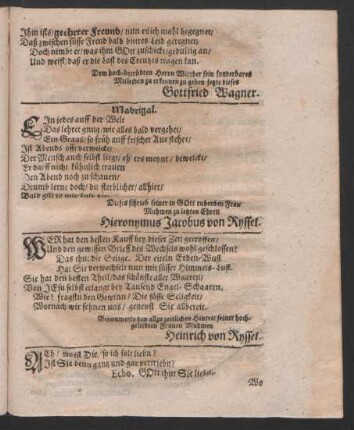 Ihm ists/ geehrter Freund/ nun etlich mahl begegnet/
Daß zwischen süsse Freud bald bittres Leid geregnet;
Doch nimbt er/ was ihm GOtt zuschickt/ gedultig an/
Und weist/ daß er die Last des Creutzes tragen kan.
Dem hoch-betrübten Herrn Witwer sein sonderbares
Mitleiden zu erkennen zu geben setzte dieses
Gottfried Wagner.
Madrigal.
EIn jedes auff der Welt
Das lehret gnug/ wie alles bald vergehet/
Ein Graaß/ so früh auff frischer Aue stehet/
Ist Abends offt verwelckt/
Der Mensch auch selbst liegt/ eh ers meynt/ bewelckt/
Er darff nicht kühnlich trauen
Den Abend noch zu schauen/
Drumb lerne doch/ du sterblicher/ allhier/
Bald gilt es mir/
Dieses schrieb seiner in GOtt ruhenden Frau
Muhmen zu letzten Ehren
Hieronymus Jacobus von Ryssel.
WER hat den besten Kauff bey dieser Zeit getroffen/
Und den gewissen Brieff des Wechsels wohl geschlossen?
Das thut die Selige. Der eiteln Erden-Wust
Hat Sie verwechselt nun mit süsser Himmels-Lust.
Sie hat den besten Theil/ das schönste aller Waaren/
Von JEsu selbst erlangt bey Tausend Engel-Schaaren.
Wie? fragstu den Gewinn? Die süsse Seligkeit/
Wornach wir sehnen uns/ geneust Sie allbereit.
Bejammerte den allzu zeitlichen Hintrit seiner hoch-
geliebten Frauen Muhmen
Heinrich von Ryssel.
ACh! wo ist Die/ so ich solt lieben?
Ist Sie denn gantz und gar vertrieben?
Echo. GOtt thut Sie lieben.
We